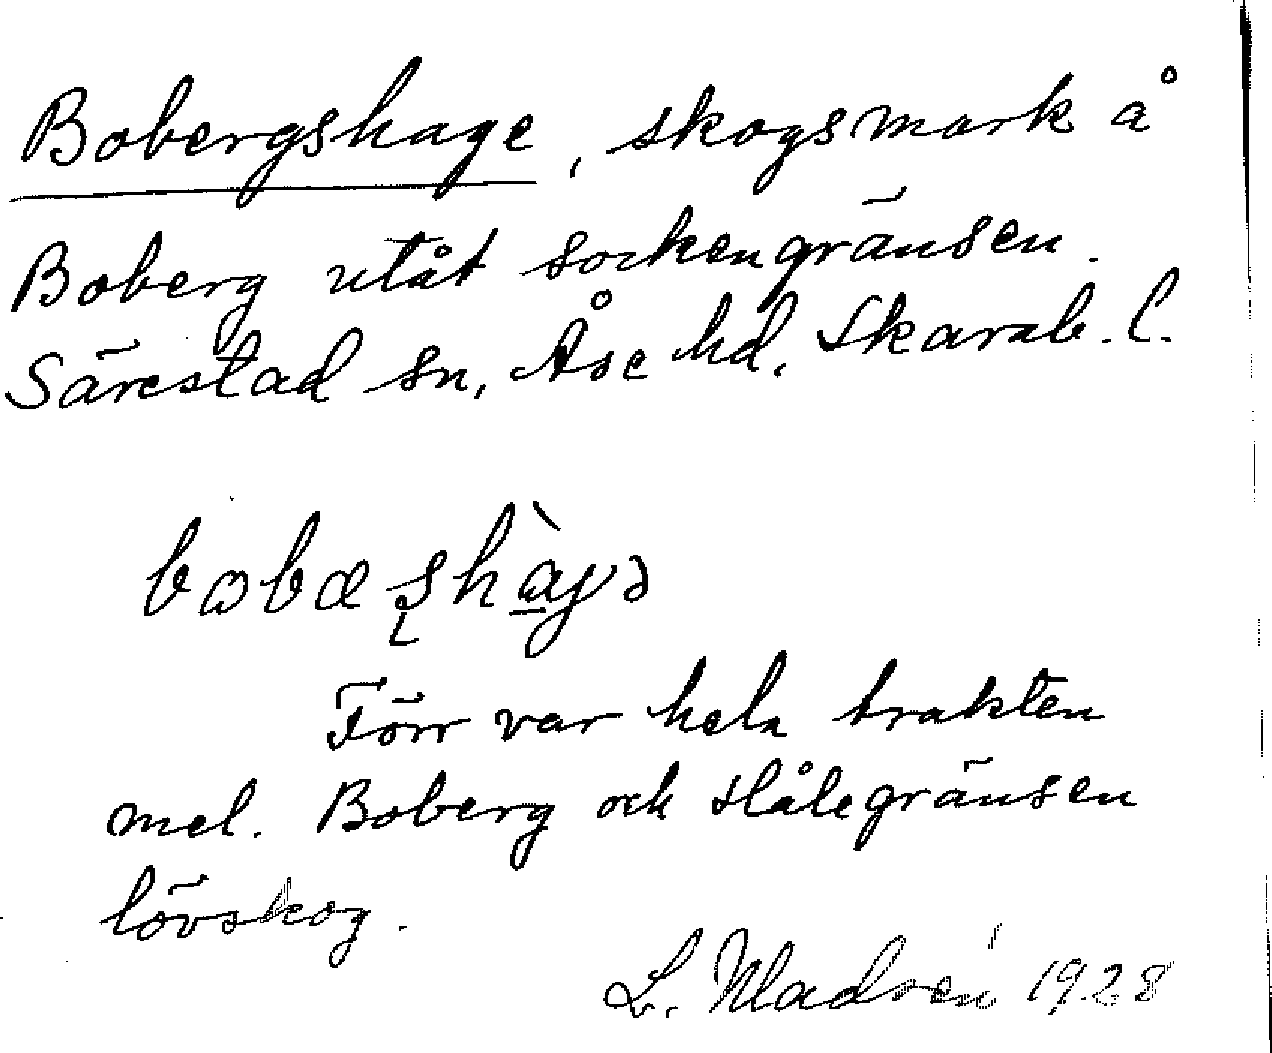 Bobergshage, skogsmark å
Boberg utåt sockengränsen.
Särestad sn, Åse hd, Skarab. l.
bobæshàgə
Förr var hela trakten
mel. Boberg och Håle gränsen
lövskog.
L. Madrén 1928